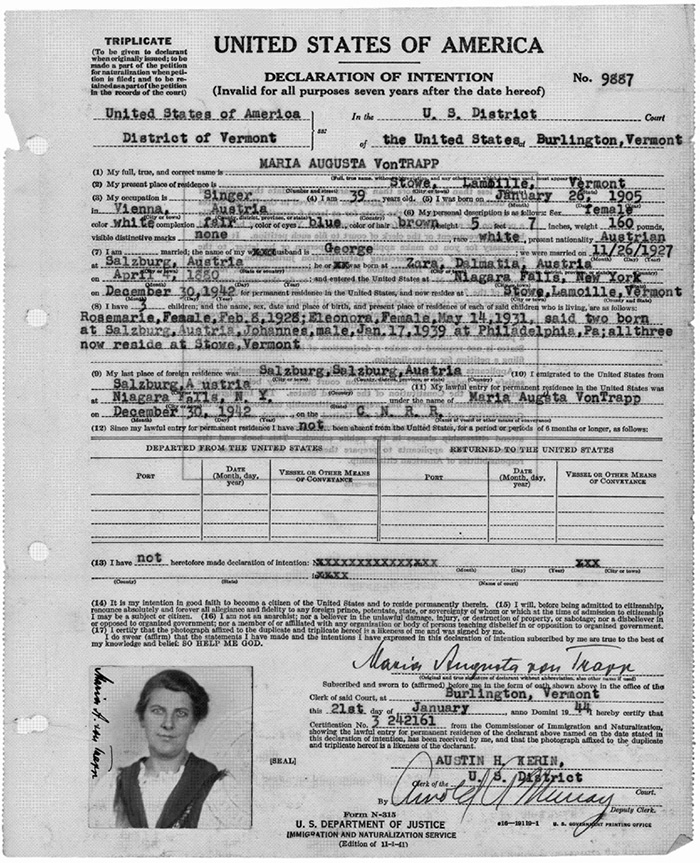 TRIPLICATE
(To be given to declarant
when originally issued; to be
made a part of the petition
for naturalization when peti-
tion is filed; and to be re-
tained as a part of the petition
in the records of the court)
UNITED STATES OF AMERICA
DECLARATION OF INTENTION
(Invalid for all purposes seven years after the date hereof)
No. 9887
United States of America
District of Vermont
ss:
In the U. S. District Court
of the United States at Burlington, Vermont
MARIA AUGUSTA VonTRAPP
(1) My full, true, and correct name is
(2) My present place of residence is Stowe, Lamoille, Vermont
(3) My occupation is Singer (4) I am 39 years old. (5) I was born on January 26, 1905
in Vienna, Austria (6) My personal description is as follows: Sex female
color white complexion fair, color of eyes blue, color of hair brown height 5 feet 7 inches, weight 160 pounds,
visible distinctive marks none race white, present nationality Austrian
(7) I am married; the name of my husband is George we were married on 11/26/1927
at Salzburg, Austria he was born at Zara, Dalmatia, Austria
on April 4, 1880 and entered the United States at Niagara Falls, New York
on December 30, 1942 for permanent residence in the United States, and now resides at Stowe, Lamoille, Vermont
(8) I have 3 children; and the name, sex, date and place of birth, and present place of residence of each of said children who is living, are as follows:
Rosemarie, Female, Feb. 8, 1928; Eleonora, Female, May 14, 1931, said two born
at Salzburg, Austria, Johannes, male, Jan. 17, 1939 at Philadelphia, Pa; all three
now reside at Stowe, Vermont
(9) My last place of foreign residence was Salzburg, Salzburg, Austria (10) I emigrated to the United States from
Salzburg, A ustria (11) My lawful entry for permanent residence in the United States was
at Niagara Falls, N. Y. under the name of Maria Augsta VonTrapp
on December 30, 1942 on the C. N. R. R.
(12) Since my lawful entry for permanent residence I have not been absent from the United States, for a period or periods of 6 months or longer, as follows:
DEPARTED FROM THE UNITED STATES
RETURNED TO THE UNITED STATES
PORT
DATE (Month, day, year)
VESSEL OR OTHER MEANS OF CONVEYANCE
PORT
DATE (Month, day, year)
VESSEL OR OTHER MEANS OF CONVEYANCE
(13) I have not heretofore made declaration of intention: No.
(Month) (Day) (Year) (City or town)
(County) (State) (Name of court)
(14) It is my intention in good faith to become a citizen of the United States and to reside permanently therein. (15) I will, before being admitted to citizenship,
renounce absolutely and forever all allegiance and fidelity to any foreign prince, potentate, state, or sovereignty of whom or which at the time of admission to citizenship
I may be a subject or citizen. (16) I am not an anarchist; nor a believer in the unlawful damage, injury, or destruction of property, or sabotage; nor a disbeliever in
or opposed to organized government; nor a member of or affiliated with any organization or body of persons teaching disbelief in or opposition to organized government.
(17) I certify that the photograph affixed to the duplicate and triplicate hereof is a likeness of me and was signed by me.
I do swear (affirm) that the statements I have made and the intentions I have expressed in this declaration of intention subscribed by me are true to the best of
my knowledge and belief: SO HELP ME GOD.
Maria Augusta von Trapp
(Original and true signature of declarant without abbreviation, also other name if used)
Subscribed and sworn to (affirmed) before me in the form of oath shown above in the office of the
Clerk of said Court, at Burlington, Vermont
this 21st day of January anno Domini 1944 I hereby certify that
Certification No. 3 242161 from the Commissioner of Immigration and Naturalization,
showing the lawful entry for permanent residence of the declarant above named on the date stated in
this declaration of intention, has been received by me, and that the photograph affixed to the duplicate
and triplicate hereof is a likeness of the declarant.
Maria A. von Trapp
[SEAL]
AUSTIN H. KERIN,
Clerk of the U. S. District Court.
By Arnold A Murray Deputy Clerk.
Form N-315
U. S. DEPARTMENT OF JUSTICE
IMMIGRATION AND NATURALIZATION SERVICE
(Edition of 11-1-41)
16—19119-1 U. S. GOVERNMENT PRINTING OFFICE